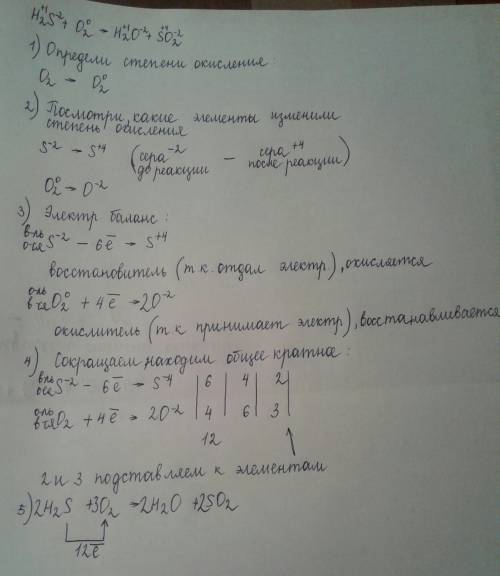 H₂⁺¹S⁻² + O₂⁰ → H₂⁺¹O⁻² + S⁺⁴O₂⁻²
1) Определи степени окисления:
O₂ → O₂⁰
2) Посмотри, какие элементы изменили
степень окисления
S⁻² → S⁺⁴ (сера⁻² до реакции — сера⁺⁴ после реакции)
O₂⁰ → O⁻²
3) Электр баланс:
в-ль о-ся S⁻² - 6ē → S⁺⁴
восстановитель (т к. отдал электр), окисляется
о-ль в-ся O₂⁰ + 4ē → 2O⁻²
окислитель (т к принимает электр), восстанавливается
4) Сокращаем, находим общее кратное:
в-ль о-ся S⁻² - 6ē → S⁻⁴ | 6 | 4 | 2 |
о-ль в-ся O₂ + 4ē → 2O⁻² | 4 | 6 | 3 |
12
2 и 3 подставляем к элементам
5) 2H₂S + 3O₂ → 2H₂O + 2SO₂
12ē